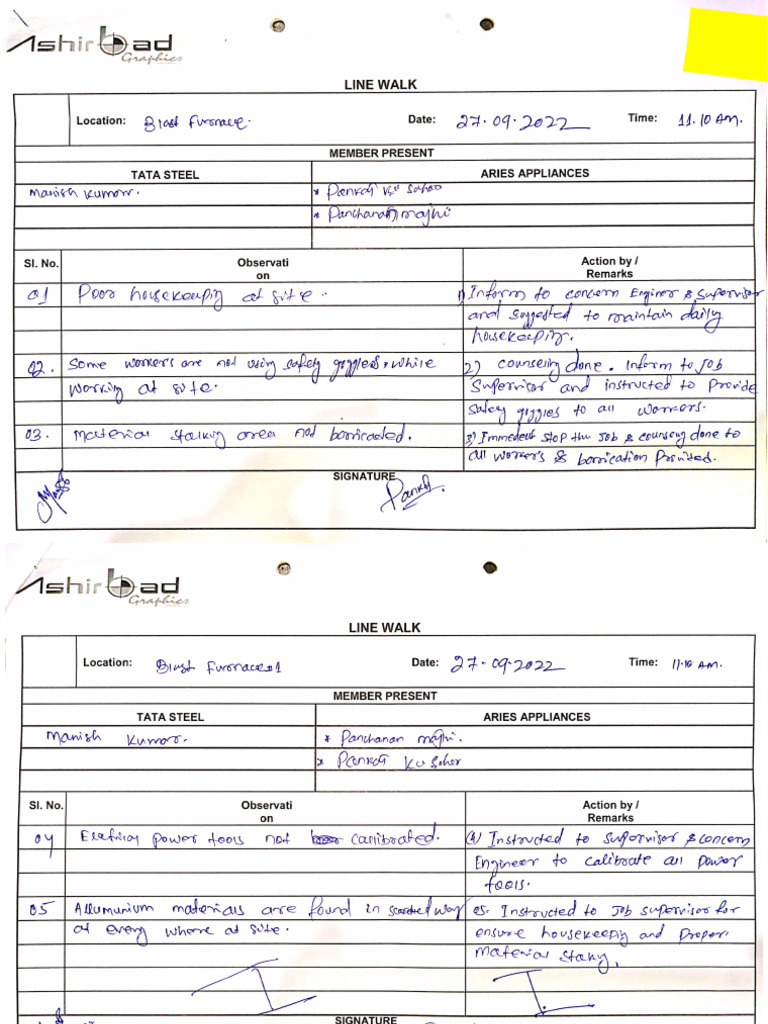 Ashirbad
Graphics
LINE WALK
Location: Blast Furnace. Date: 27.09.2022 Time: 11.10 AM.
MEMBER PRESENT
TATA STEEL ARIES APPLIANCES
Manish Kumar. * Pankaj Ku Sahoo
* Panchanan majhi
Sl. No. Observati Action by /
on Remarks
01 Poor housekeeping at site. 1) Inform to concern Engineer & Supervisor
and suggested to maintain daily
housekeeping.
02. Some workers are not using safety goggles while 2) counseling done. Inform to Job
working at site. Supervisor and instructed to Provide
safety goggles to all workers.
03. Material staking area not barricated. 3) Immediate stop the Job & counseling done to
all workers & barrication Provided.
SIGNATURE
Pankaj
Ashirbad
Graphics
LINE WALK
Location: Blast Furnace 01 Date: 27.09.2022 Time: 11.10 AM.
MEMBER PRESENT
TATA STEEL ARIES APPLIANCES
Manish Kumar. * Panchanan majhi.
* Pankaj Ku Sahoo
Sl. No. Observati Action by /
on Remarks
04 power tools not callibrated. 4) Instructed to Supervisor & concern
Engineer to calibrate all power
tools.
05 Allumunium materials are found in way 05. Instructed to Job supervisor for
at every where at site. ensure housekeeping and Proper
Material staking.
SIGNATURE